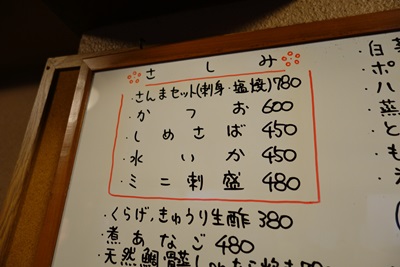 さしみ
・さんまセット(刺身・塩焼)780
・かつお 600
・しめさば 450
・水いか 450
・ミニ刺盛 480
・くらげ、きゅうり生酢 380
・煮あなご 480
・天然鯛骨蒸し
・白
・ポ
・ハ
・蒸
・と
・も